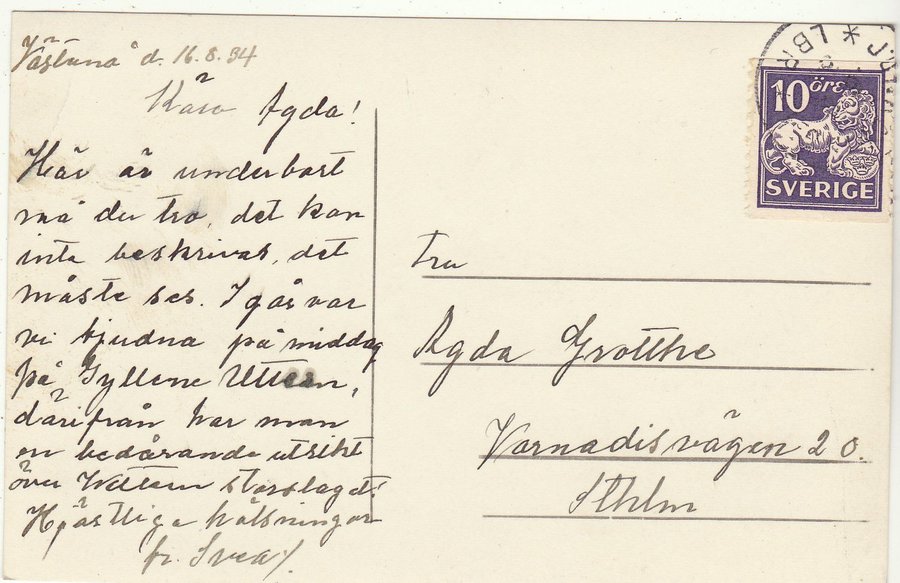 Västanå d. 16.8.34
Kära Agda!
Här är underbart
må du tro, det kan
inte beskrivas, det
måste ses. I går var
vi bjudna på middag
på Gyllene Uttern,
därifrån har man
en bedårande utsikt
över Vettern storslaget!
Hjärtliga hälsningar
fr. Svea
10 öre
SVERIGE
LBR
Fru
Agda Grotthe
Varnadisvägen 20.
Sthlm